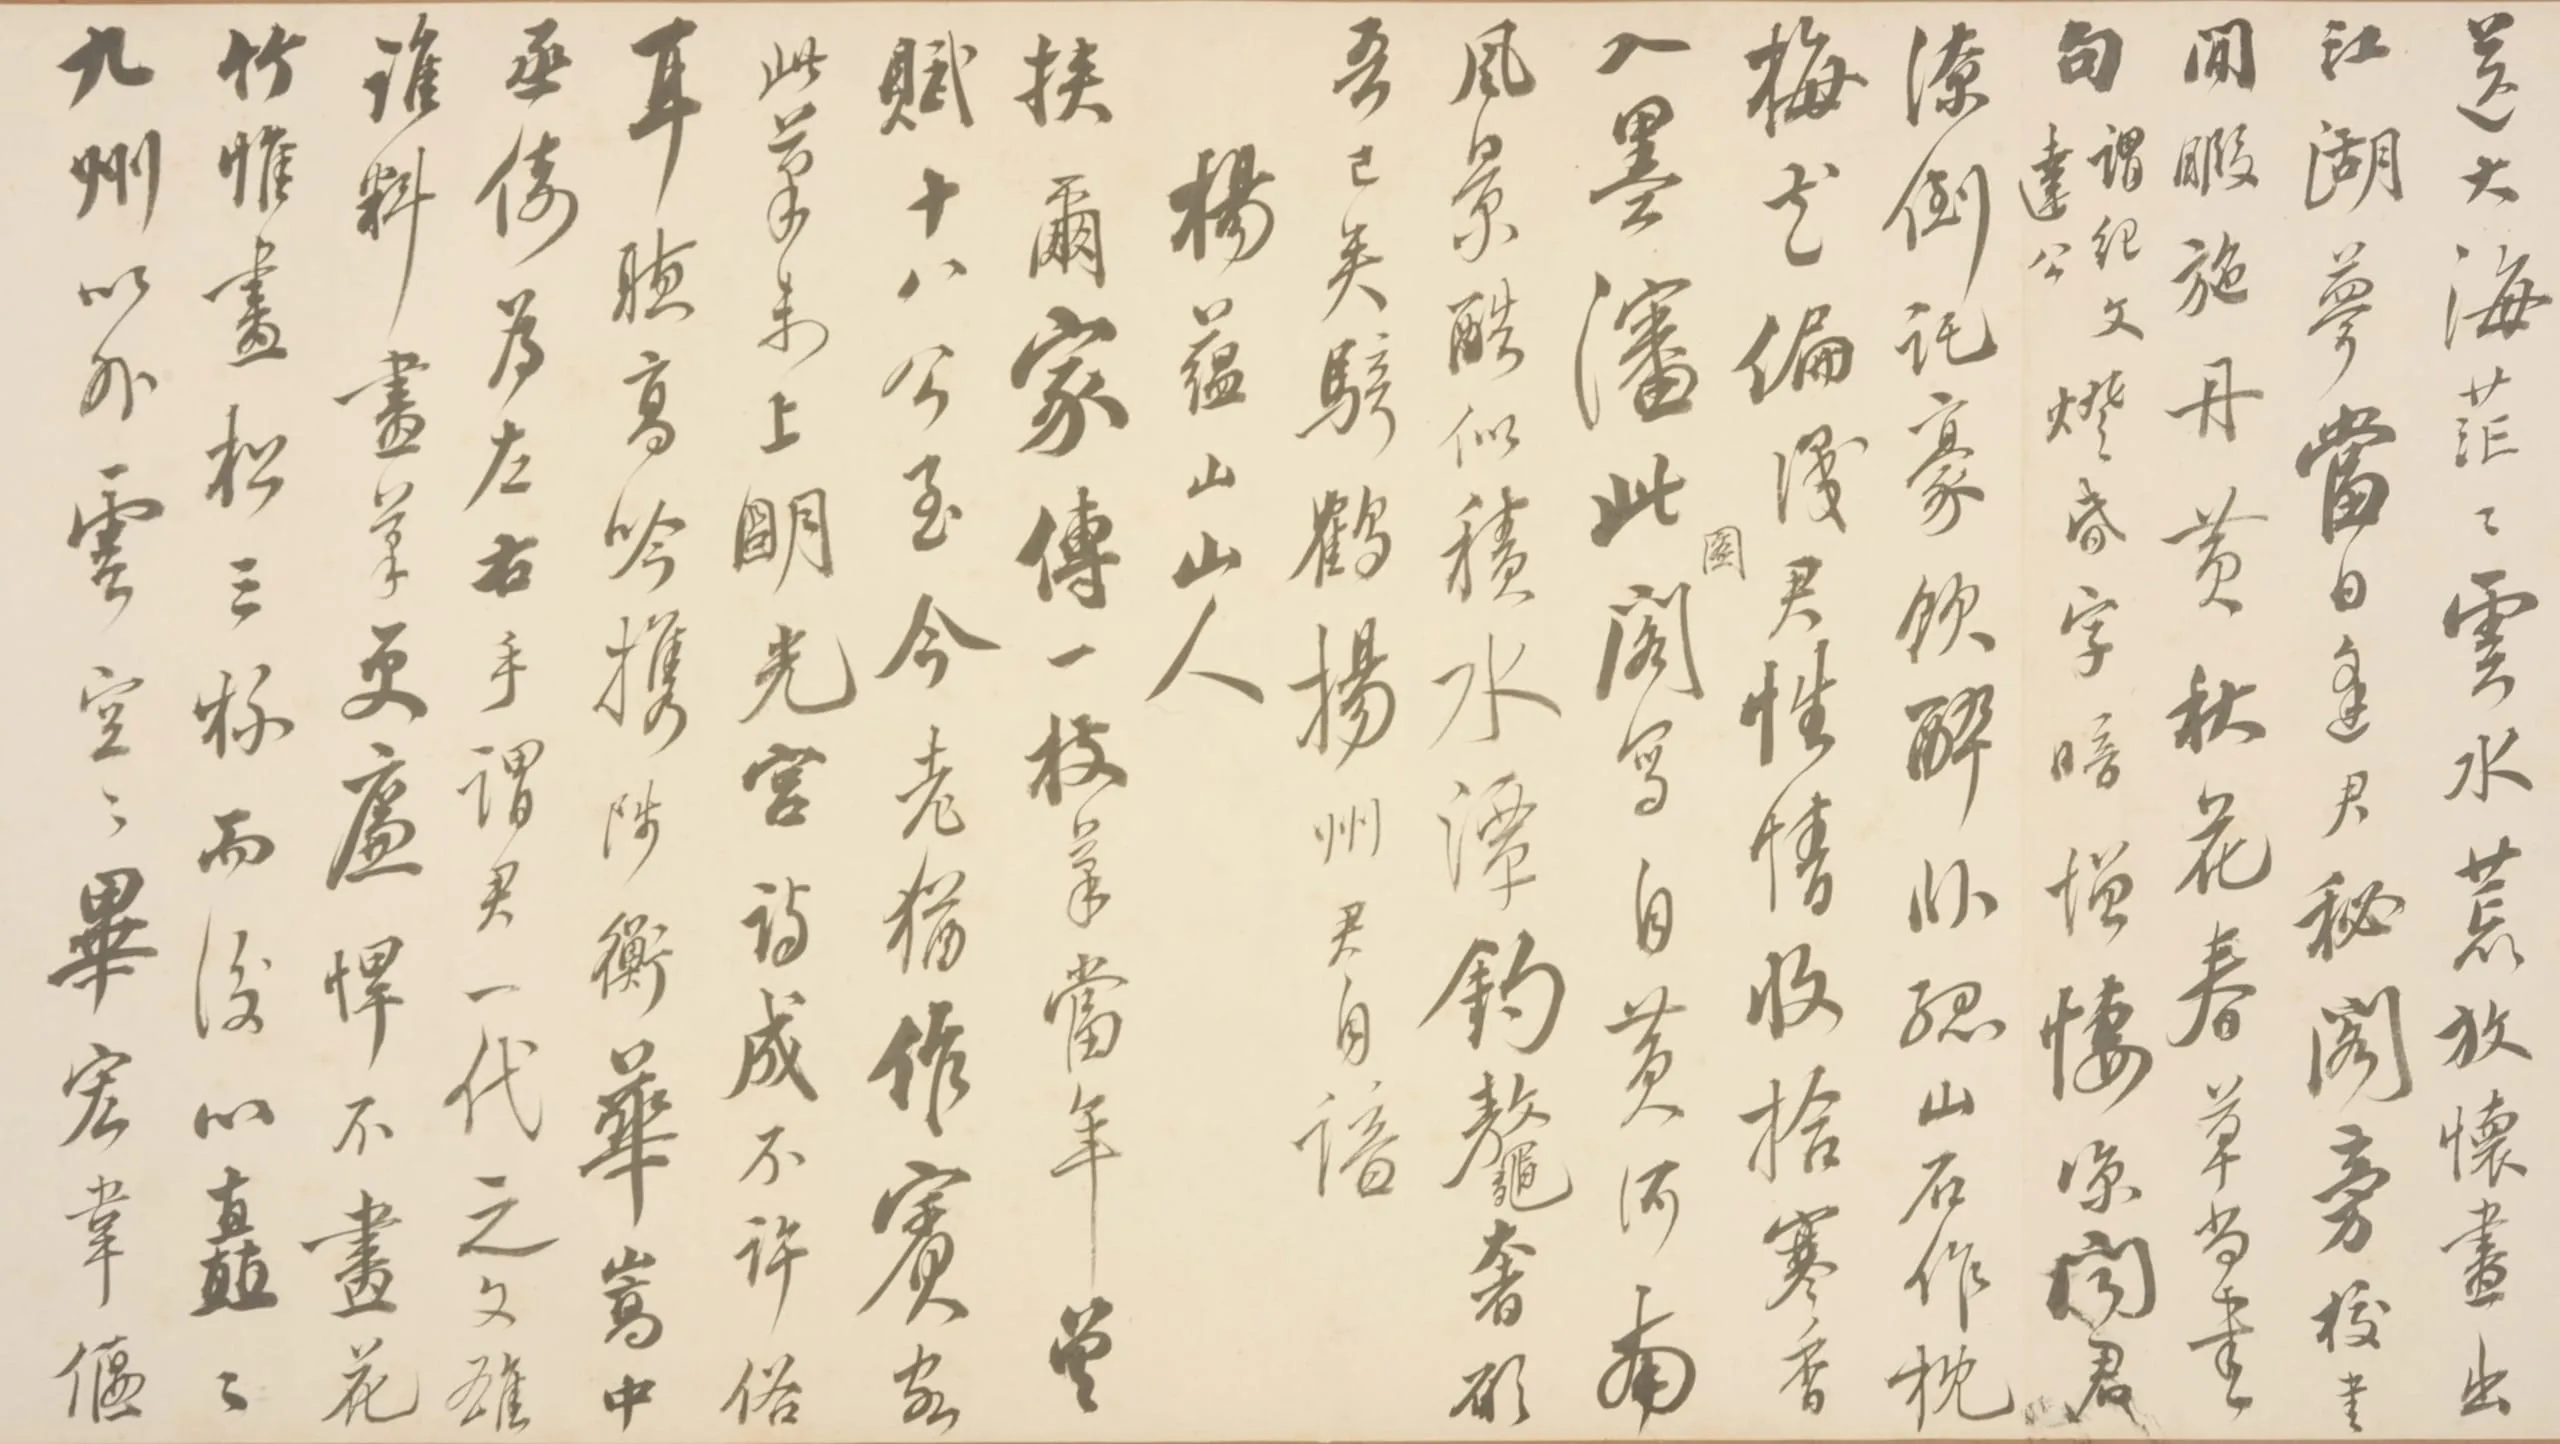 送大海茫〻雲水荒放懷畫出
江湖夢當日逢君秘閣旁校書
閒暇施丹黃秋花春草尚書
句謂紀文達公燈昏字暗增悽涼聞君
潦倒託豪飲醉臥怒山石作枕
梅花偏識君性情收拾寒香
入墨瀋此圖閣寫自黃河南
風景酷似積水潭釣鼇奢願
吾已矣騎鶴揚州君自諳
楊蘊山山人
挾爾家傳一枝筆當年曾
賦十八公至今老猶作賓客
此筆未上明光宮詩成不許俗
耳聽高吟攜陟衡華嵩中
丞倚為左右手謂君一代之文雄
誰料畫筆更廉悍不畫花
竹惟畫松三株而後以直矗〻
九州以外雲空〻畢宏韋偃